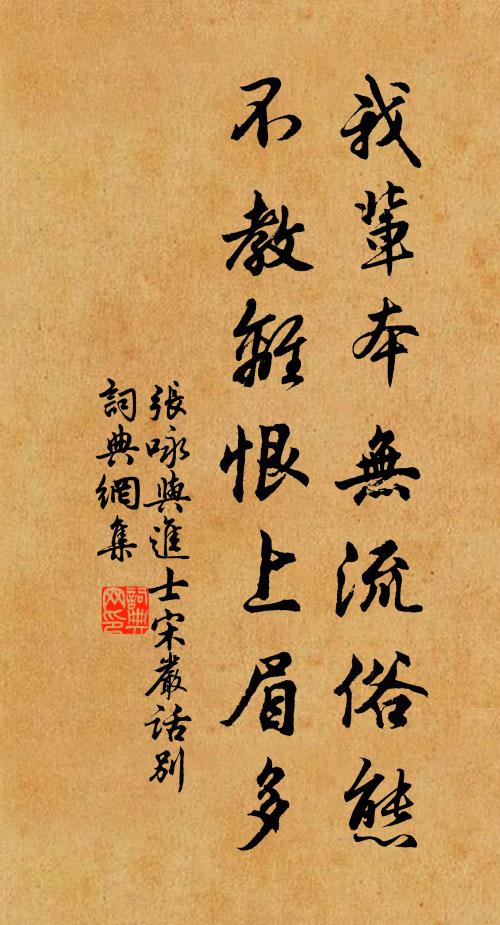 我輩本無流俗態
不教離恨上眉多
張咏與進士宋嚴話別
詞典網集
詞典网印